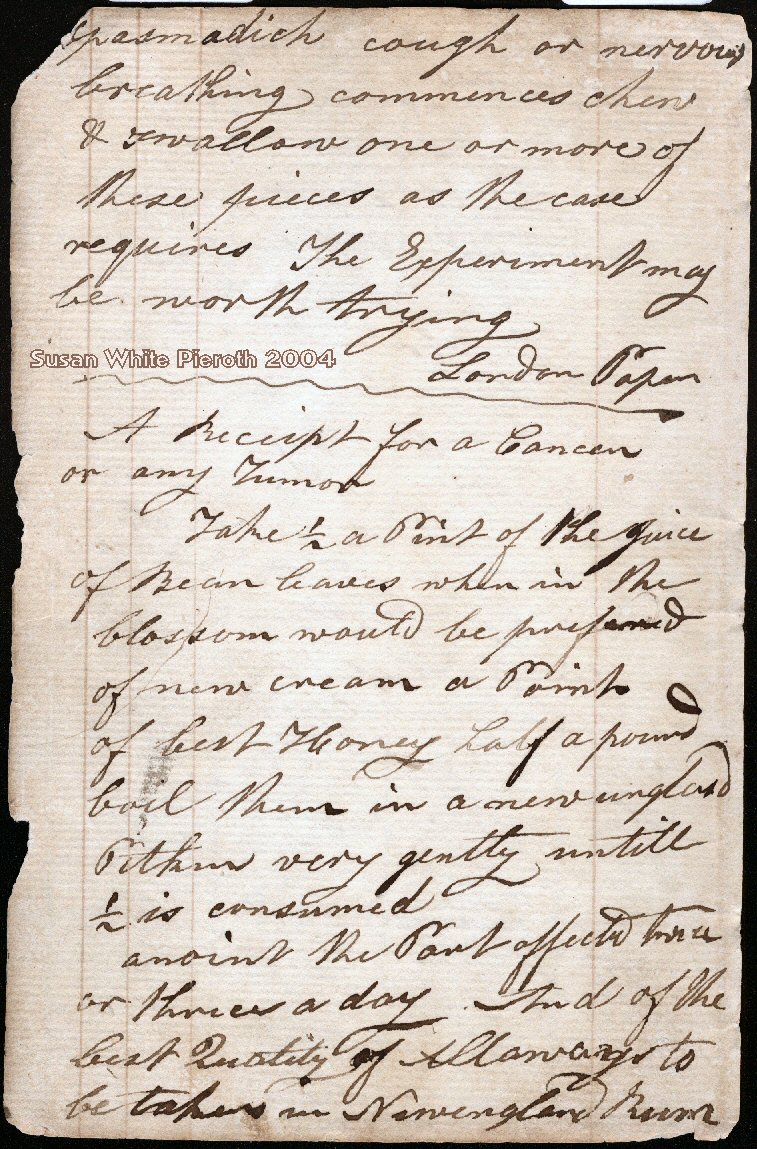 spasmadich cough or nervous
breathing commences chew
& swallow one or more of
these pieces as the case
requires The Experiment may
be worth trying
Susan White Pieroth 2004
London Paper
A Receipt for a Cancer
or any Tumor
Take ½ a Pint of the juice
of Bean leaves when in the
blossom would be prefered
of new cream a Point
of best Honey half a pound
boil them in a new unglasd
very gently untill
½ is consumed
anoint the Part affectd twice
or thrice a day And of the
best Quality of to
be taken in Newengland Rum